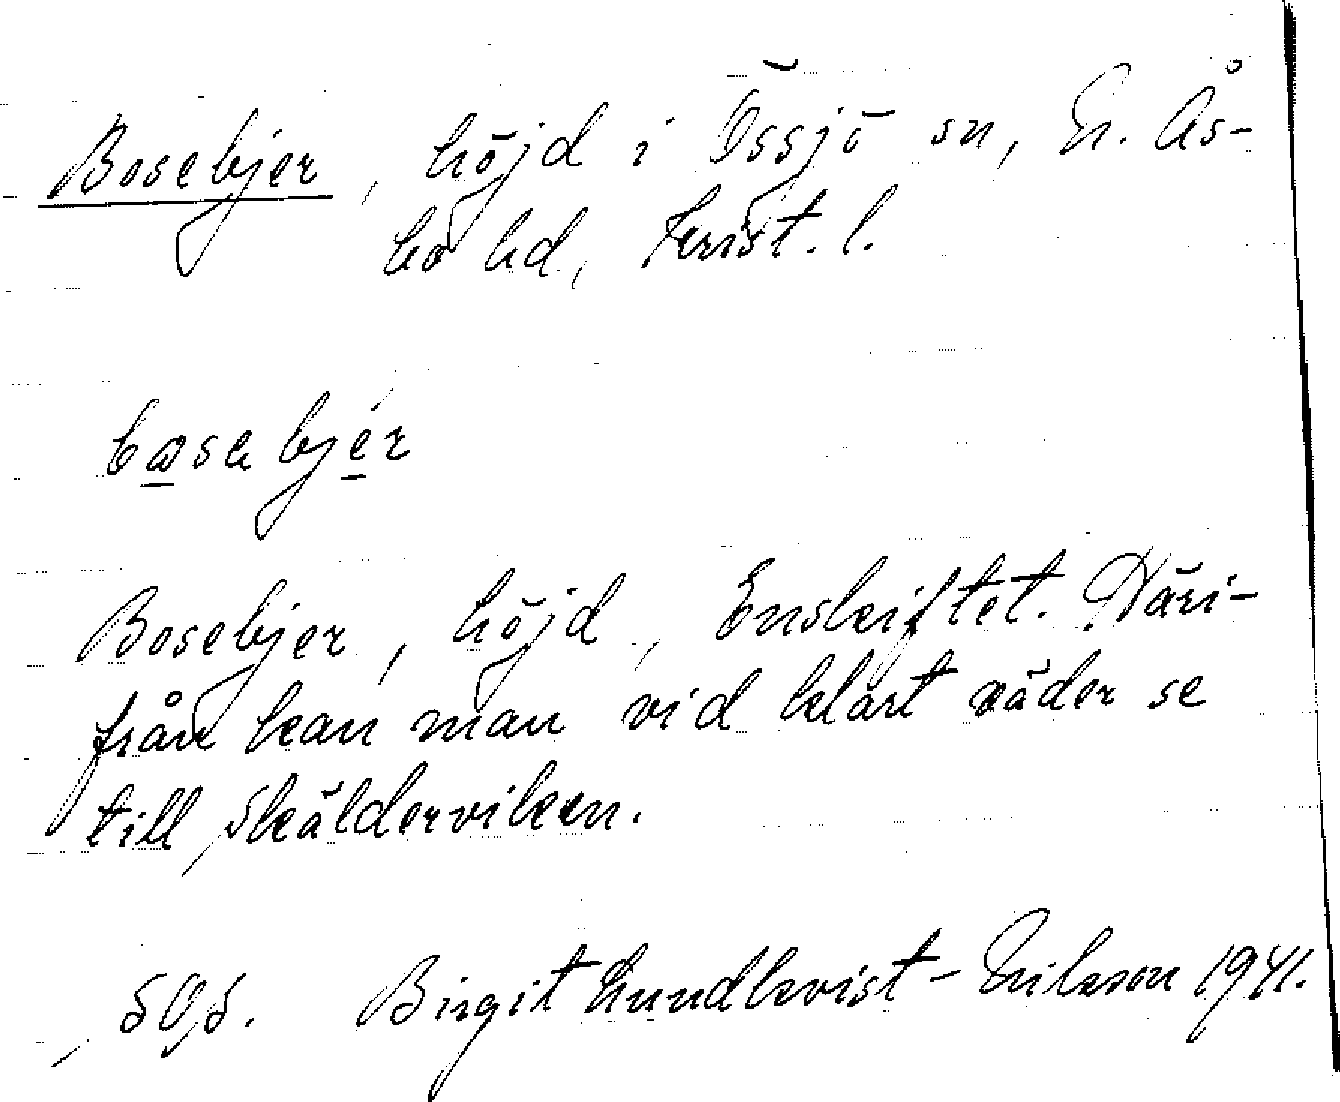 Bosebjer, höjd i Össjö sn, N. Ås-
bo hd, Krist. l.
bosebjér
Bosebjer, höjd, Enskiftet. Häri-
från kan man vid klart väder se
till Skälderviken.
Birgit Lundkvist-Nilsson 1941.